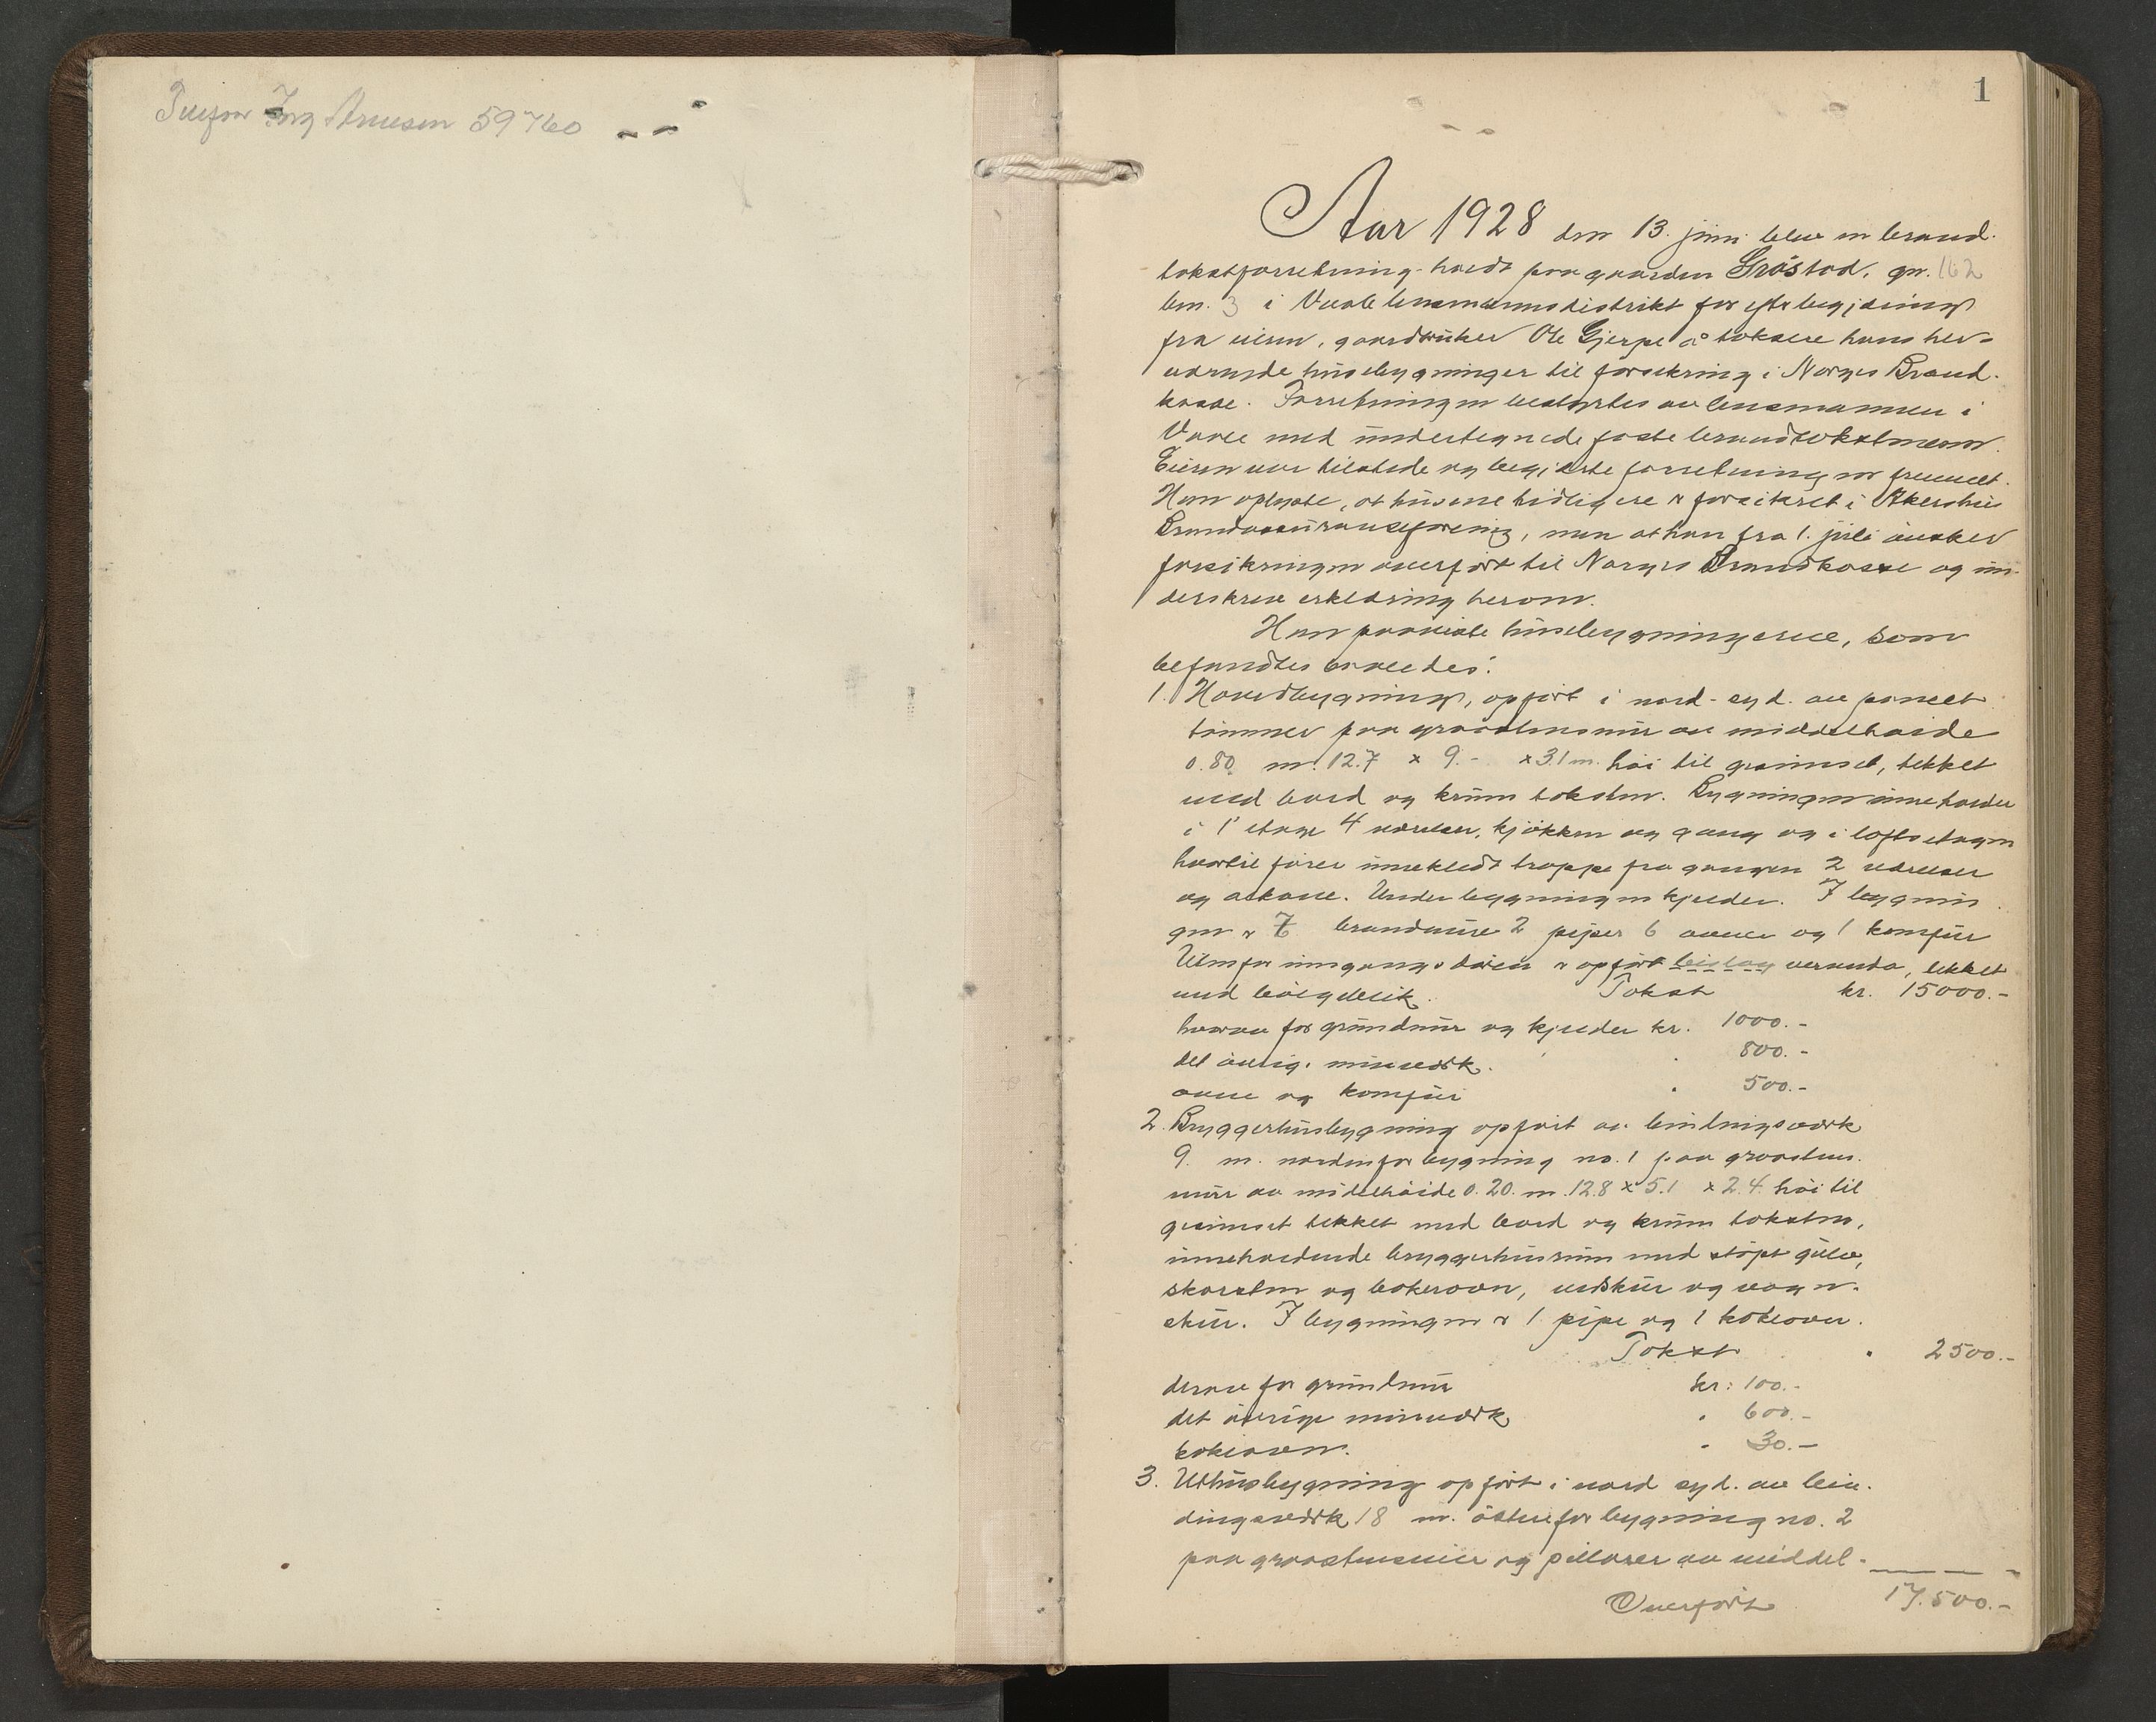 Telefon Ing Arnesen 59760
1
Aar 1928 den 13. juni blev en brand-
takstforretning holdt paa gaarden Gråstad, gn. 162
bn. 3 i Vaale lensmannsdistrikt for efter begjæring
fra eieren, gaardbruker Ole Gjerpe å taksere hans her-
værende husebygninger til forsikring i Norges Brand-
kasse. Forretningen bestyrtes av lensmannen i
Vaale med undertegnede faste brandtakstmenn.
Eieren var tilstede og begjærte forretningen fremmet.
Han oplyste, at husene tidligere er forsikret i Akershus
Brandassuranseforening, men at han fra 1. juli ønsker
forsikringen overført til Norges Brandkasse og un-
derskrev erklæring herom.
Han paaviste husebygningerne, som
befandtes saaledes:
1. Hovedbygning, opført i nord-syd. av panelt
tømmer paa graastensmur av middelhøide
0.80 m. 12.7 x 9.- x 3.1 m. høi til gesimset, tekket
med bord og krum taksten. Bygningen inneholder
i 1' etage 4 værelser, kjøkken og gang og i loftsetagen
hvortil fører innekledt trappe fra gangen 2 værelser
og altane. Under bygningen kjelder. I bygnin-
gen er 7 brandmure 2 piper 6 ovner og 1 komfur
Utenfor inngangsdøren er opført bislag veranda, tekket
med bølgeblik. Takst kr. 15000.-
hvorav for grundmur og kjelder kr. 1000.-
det øvrige murverk. " 800.-
ovne og komfur " 500.-
2. Bryggerhusbygning opført av bindingsverk
9. m. nordenfor bygning no. 1 paa graastens-
mur av middelhøide 0.20. m. 12.8 x 5.1 x 2.4. høi til
gesimset tekket med bord og krum taksten,
inneholdende bryggerhusrum med støpt gulv,
skorsten og bakerovn, vedskur og vogn-
skur. I bygningen er 1 pipe og 1 kokeovn.
Takst " 2500.-
derav for grundmur kr: 100.-
det øvrige murverk " 600.-
kokeovn. " 30.-
3. Uthusbygning opført i nord syd. av bin-
dingsverk 18 m. østenfor bygning no. 2
paa graastensmur og pillarer av middel-
Overført 17.500.-